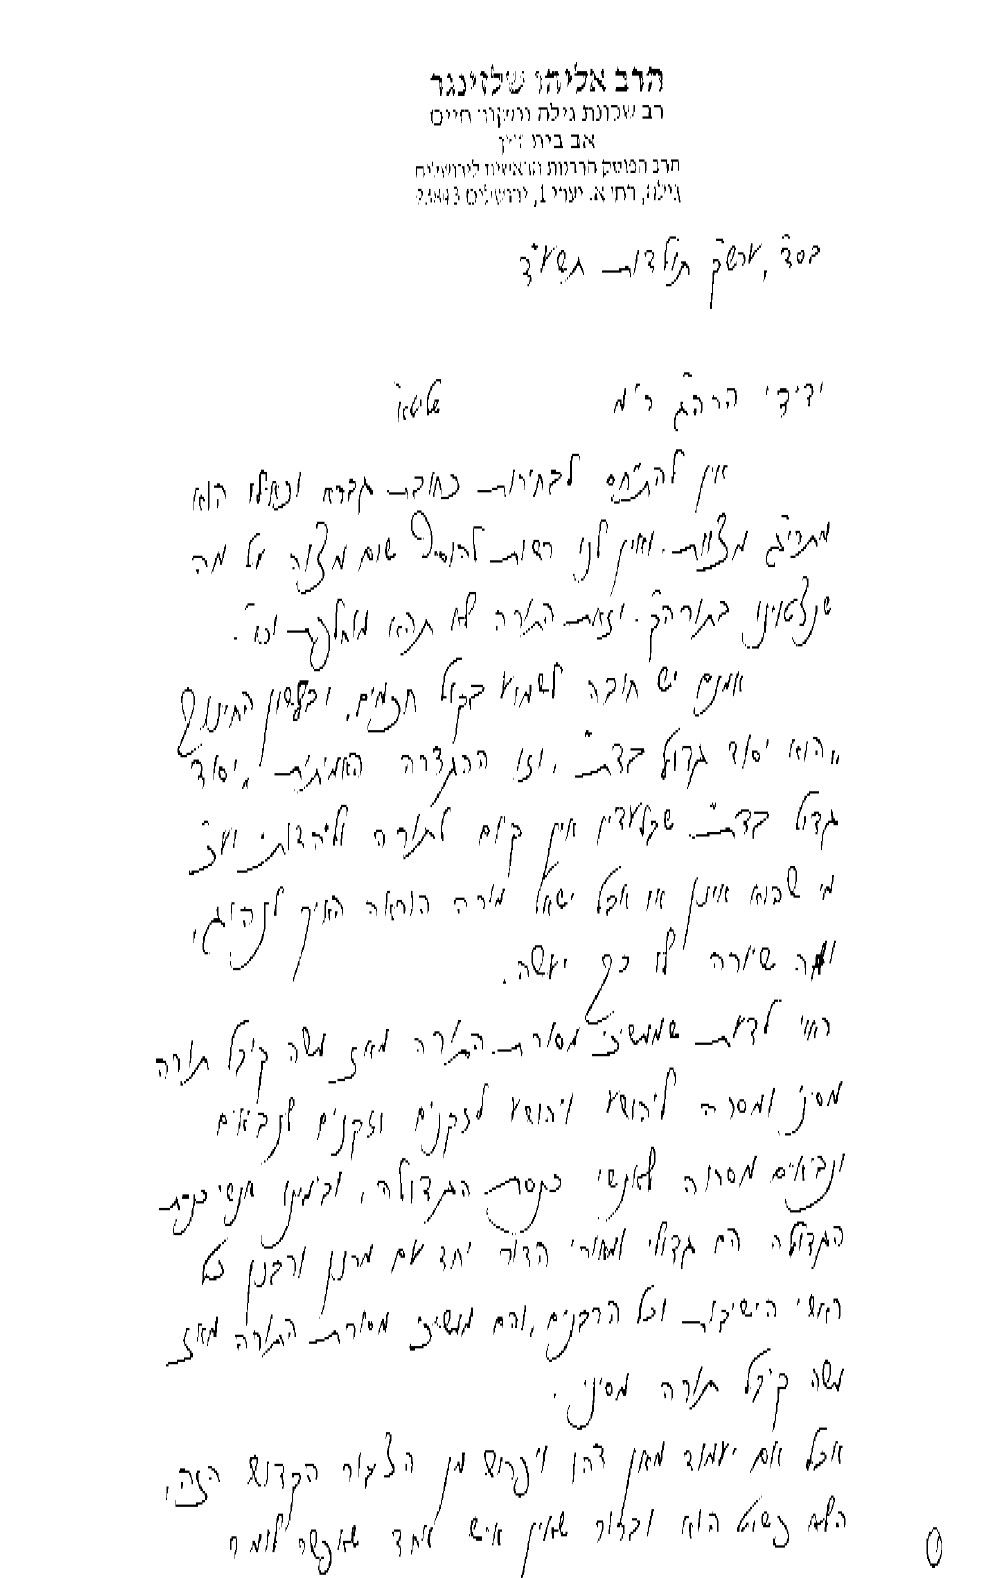 הרב אליהו שלזינגר
רב שכונת גילה ומקור חיים
אב בית דין
חבר הפוסק הרבנות הראשית לירושלים
גילה, רח' א. יערי 1, ירושלים 93843
בסד, ערש"ק תולדות תשע"ד
ידידי הרה"ג ר' מ שליט"א
אין להתיחס לבחירות כחובת גברא וכאילו הוא
מתרי"ג מצוות. ואין לנו רשות להוסיף שום מצוה על מה
שנצטוינו בתוה"ק. וזאת התורה לא תהא מוחלפת וכו'.
אמנם יש חובה לשמוע בקול חכמים, ובלשון החינוך
"הוא יסוד גדול בדת", וזו ההגדרה האמיתית "יסוד
גדול בדת" שבלעדיו אין קיום לתורה וליהדות, ועכ
מי שהוא אינו או אצל ישאל מורה הוראה האיך לנהוג,
ומה שיורה לו כך יעשה.
ראוי לדעת שממשיכי מסורת התורה מאז משה קיבל תורה
מסיני ומסרה ליהושע ויהושע לזקנים וזקנים לנביאים
ונביאים מסרוה לאנשי כנסת הגדולה, ובימינו אנשי כנסת
הגדולה הם גדולי ומאורי הדור יחד עם מרנן ורבנן כל
ראשי הישיבות וכל הרבנים, והם ממשיכי מסורת התורה מאז
משה קיבל תורה מסיני.
אבל אם יעמוד מאן דהו ויפרוש מן הצבור הקדוש הזה,
הלא פשוט הוא וברור שאין איש אחד שאפשר לומר